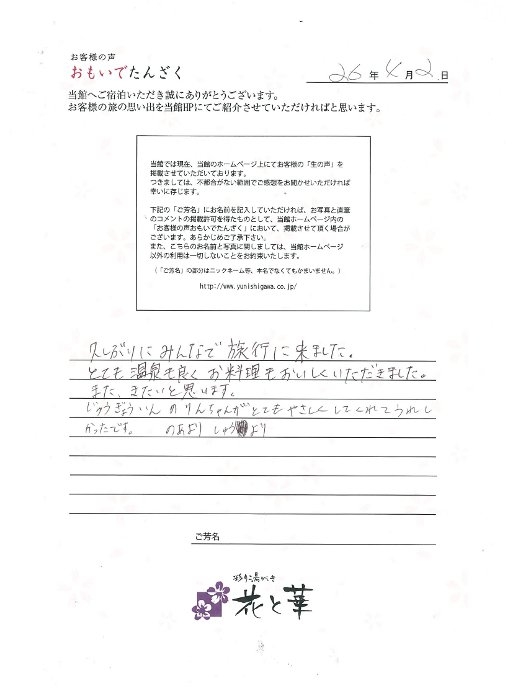 お客様の声
おもいでたんざく
26年4月2日
当館へご宿泊いただき誠にありがとうございます。
お客様の旅の思い出を当館HPにてご紹介させていただければと思います。
当館では現在、当館のホームページ上にてお客様の「生の声」を
掲載させていただいております。
つきましては、不都合がない範囲でご感想をお聞かせいただければ
幸いに存じます。
下記の「ご芳名」にお名前を記入していただければ、お写真と直筆
のコメントの掲載許可を得たものとして、当館ホームページ内の
「お客様の声おもいでたんざく」において、掲載させて頂く場合が
ございます。あらかじめご了承下さい。
また、こちらのお名前と写真に関しましては、当館ホームページ
以外の利用は一切しないことをお約束いたします。
(「ご芳名」の部分はニックネーム等、本名でなくてもかまいません。)
http://www.yunishigawa.co.jp/
久しぶりにみんなで旅行に来ました。
とても温泉も良くお料理もおいしくいただきました。
また、きたいと思います。
じゅうぎょういんのりんちゃんがとてもやさしくしてくれてうれし
かったです。 のあより しゅうより
ご芳名
花と華